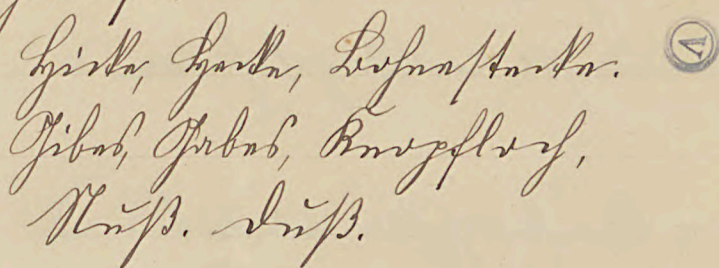 Hicke, Hecke, Bohnestecke.
Gibes, Gabes, Knopfloch,
Nuß. Duß.